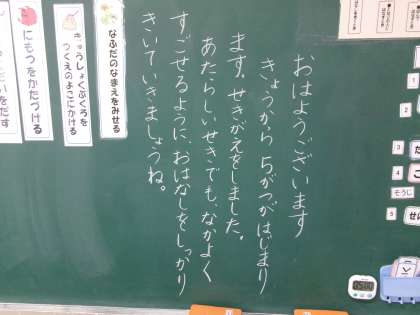 おはようございます
きょうから5がつがはじまり
ます。せきがえをしました。
あたらしいせきでも、なかよく
すごせるように、おはなしをしっかり
きいていきましょうね。
なふだのなまえをみせる
きゅうしょくぶくろを
つくえのよこにかける
にもつをかたづける
だいをだす
1
2
3
4
そうじ
5